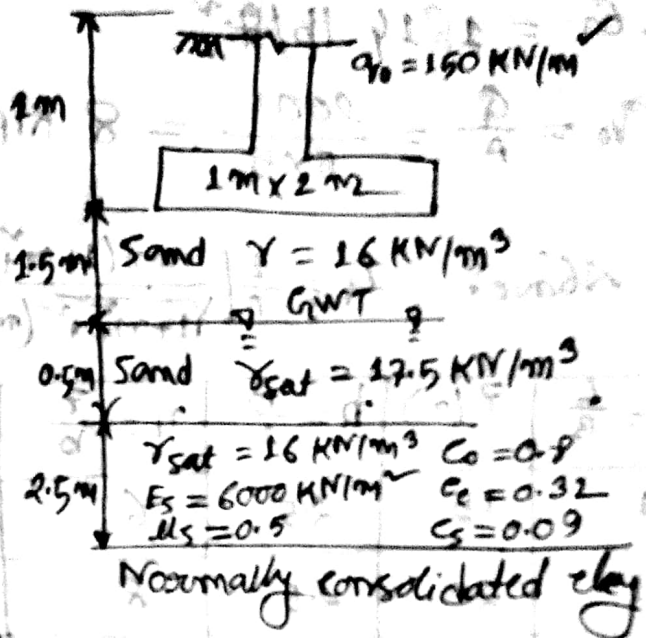 q₀ = 150 KN/m²
1m
1m x 2m
1.5m Sand γ = 16 KN/m³
GWT
0.5m Sand γsat = 17.5 KN/m³
γsat = 16 KN/m³ e₀ = 0.8
2.5m Es = 6000 KN/m² Cc = 0.32
μs = 0.5 Cs = 0.09
Normally consolidated clay